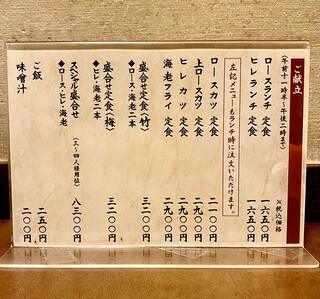 ご献立
(午前十一時半～午後二時まで)
※税込価格
ロースランチ 定食 一六五〇円
ヒレランチ 定食 一六五〇円
左記メニューもランチ時に注文いただけます。
ロースカツ 定食 二一〇〇円
上ロースカツ 定食 二九〇〇円
ヒレカツ 定食 二九〇〇円
海老フライ 定食 二九〇〇円
盛合せ定食(竹) 三二〇〇円
◆ロース・海老二本
盛合せ定食(梅) 三二〇〇円
◆ヒレ・海老二本
スペシャル盛合せ (三～四人様用位) 八三〇〇円
◆ロース・ヒレ・海老
ご飯 二五〇円
味噌汁 二〇〇円